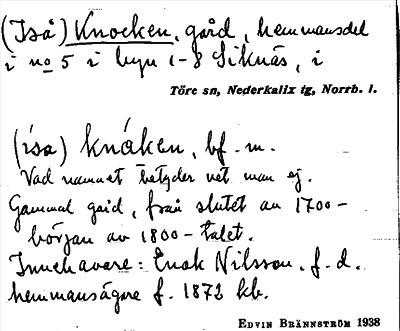 (Iså) Knocken, gård, hemmansdel
i no 5 i byn 1-8 Siknäs, i
Töre sn, Nederkalix tg, Norrb. l.
(ísa) knáken, bf. m.
Vad namnet betyder vet man ej.
Gammal gård, från slutet av 1700-
början av 1800-talet.
Innehavare: Enok Nilsson, f. d.
hemmansägare f. 1872 kb.
EDVIN BRÄNNSTRÖM 1938